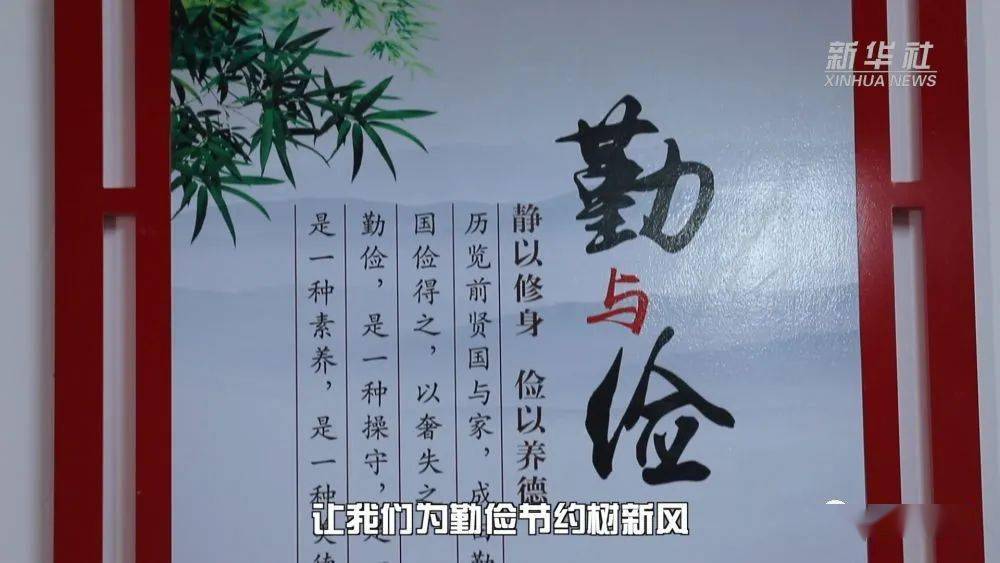 新华社
XINHUA NEWS
勤
与
俭
静以修身 俭以养德
历览前贤国与家，成
国俭得之，以奢失之
勤俭，是一种操守，
是一种素养，是一种
让我们为勤俭节约树新风